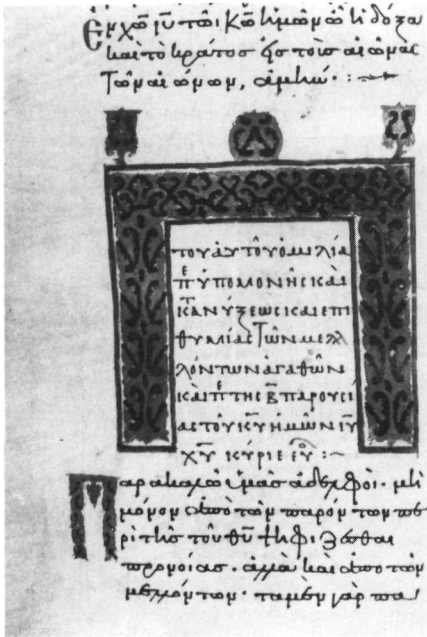 Ἐν χῶ ἰῦ τῶι κῶ ἡμῶν ὧ ἡ δόξα
καὶ τὸ κράτος εἰς τοὺς αἰῶνας
τῶν αἰώνων, ἀμήν.
τοῦ αὐτοῦ ὁμιλία
π ὑπομονῆς καὶ
κτανύξεως καὶ ἐπι
θυμίας τῶν μελ
λόντων ἀγαθῶν
καὶ π τῆς β παρουσί
ας τοῦ κῦ ἡμῶν ἰῦ
χῦ κύριε εὐ :~
Παρακαλῶ ὑμᾶς ἀδελφοί· μὴ
μόνον ἀπὸ τῶν παρόντων πε
ρὶ τῆς τοῦ θῦ πείθεσθαι
προνοίας. ἀλλὰ καὶ ἀπὸ τῶν
μελλόντων· τὰ μὲν γὰρ πα